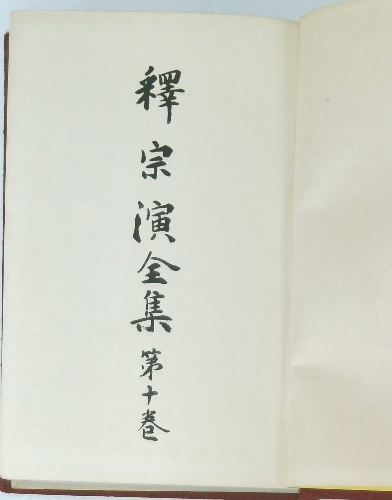 釋宗演全集第十卷